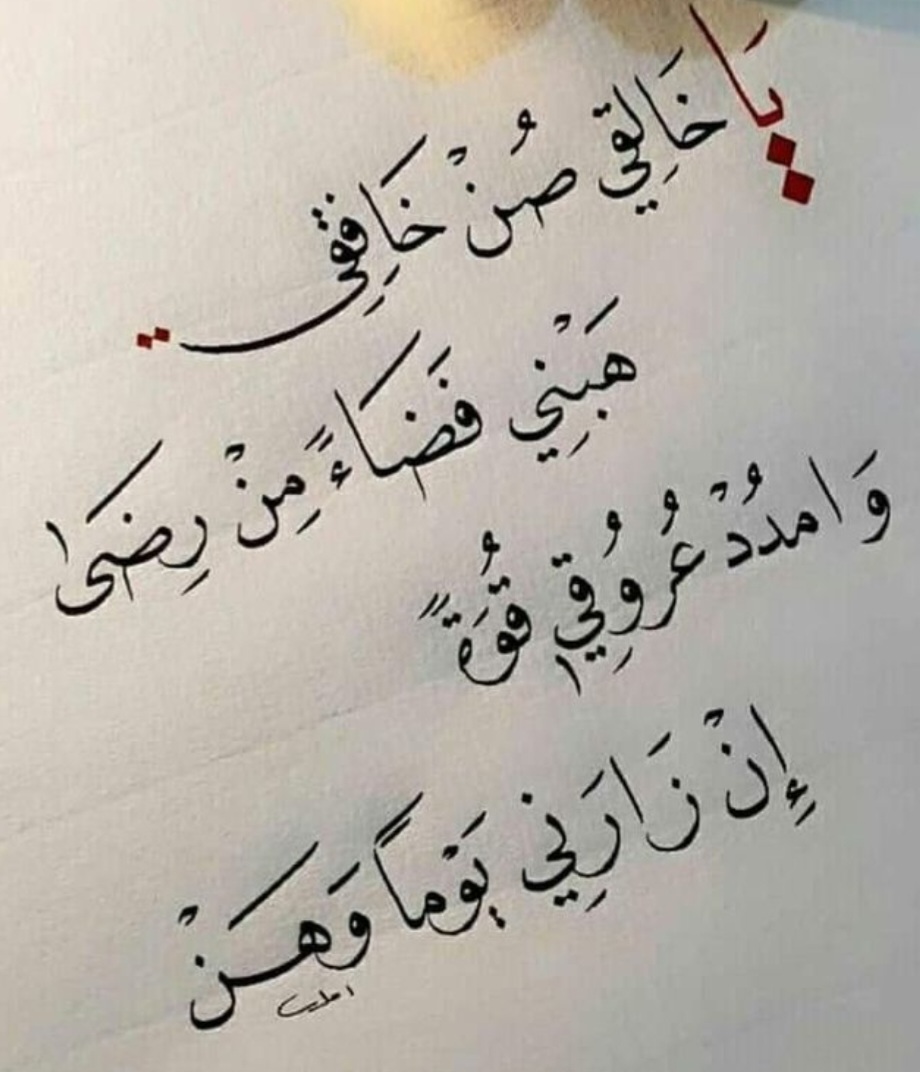 يَا خَالِقِي صُنْ خَافِقِي
هَبْنِي فَضَاءً مِنْ رِضَى
وَامدُدْ عُرُوقِي قُوَةً
إِنْ زَارَنِي يَوْماً وَهَنْ